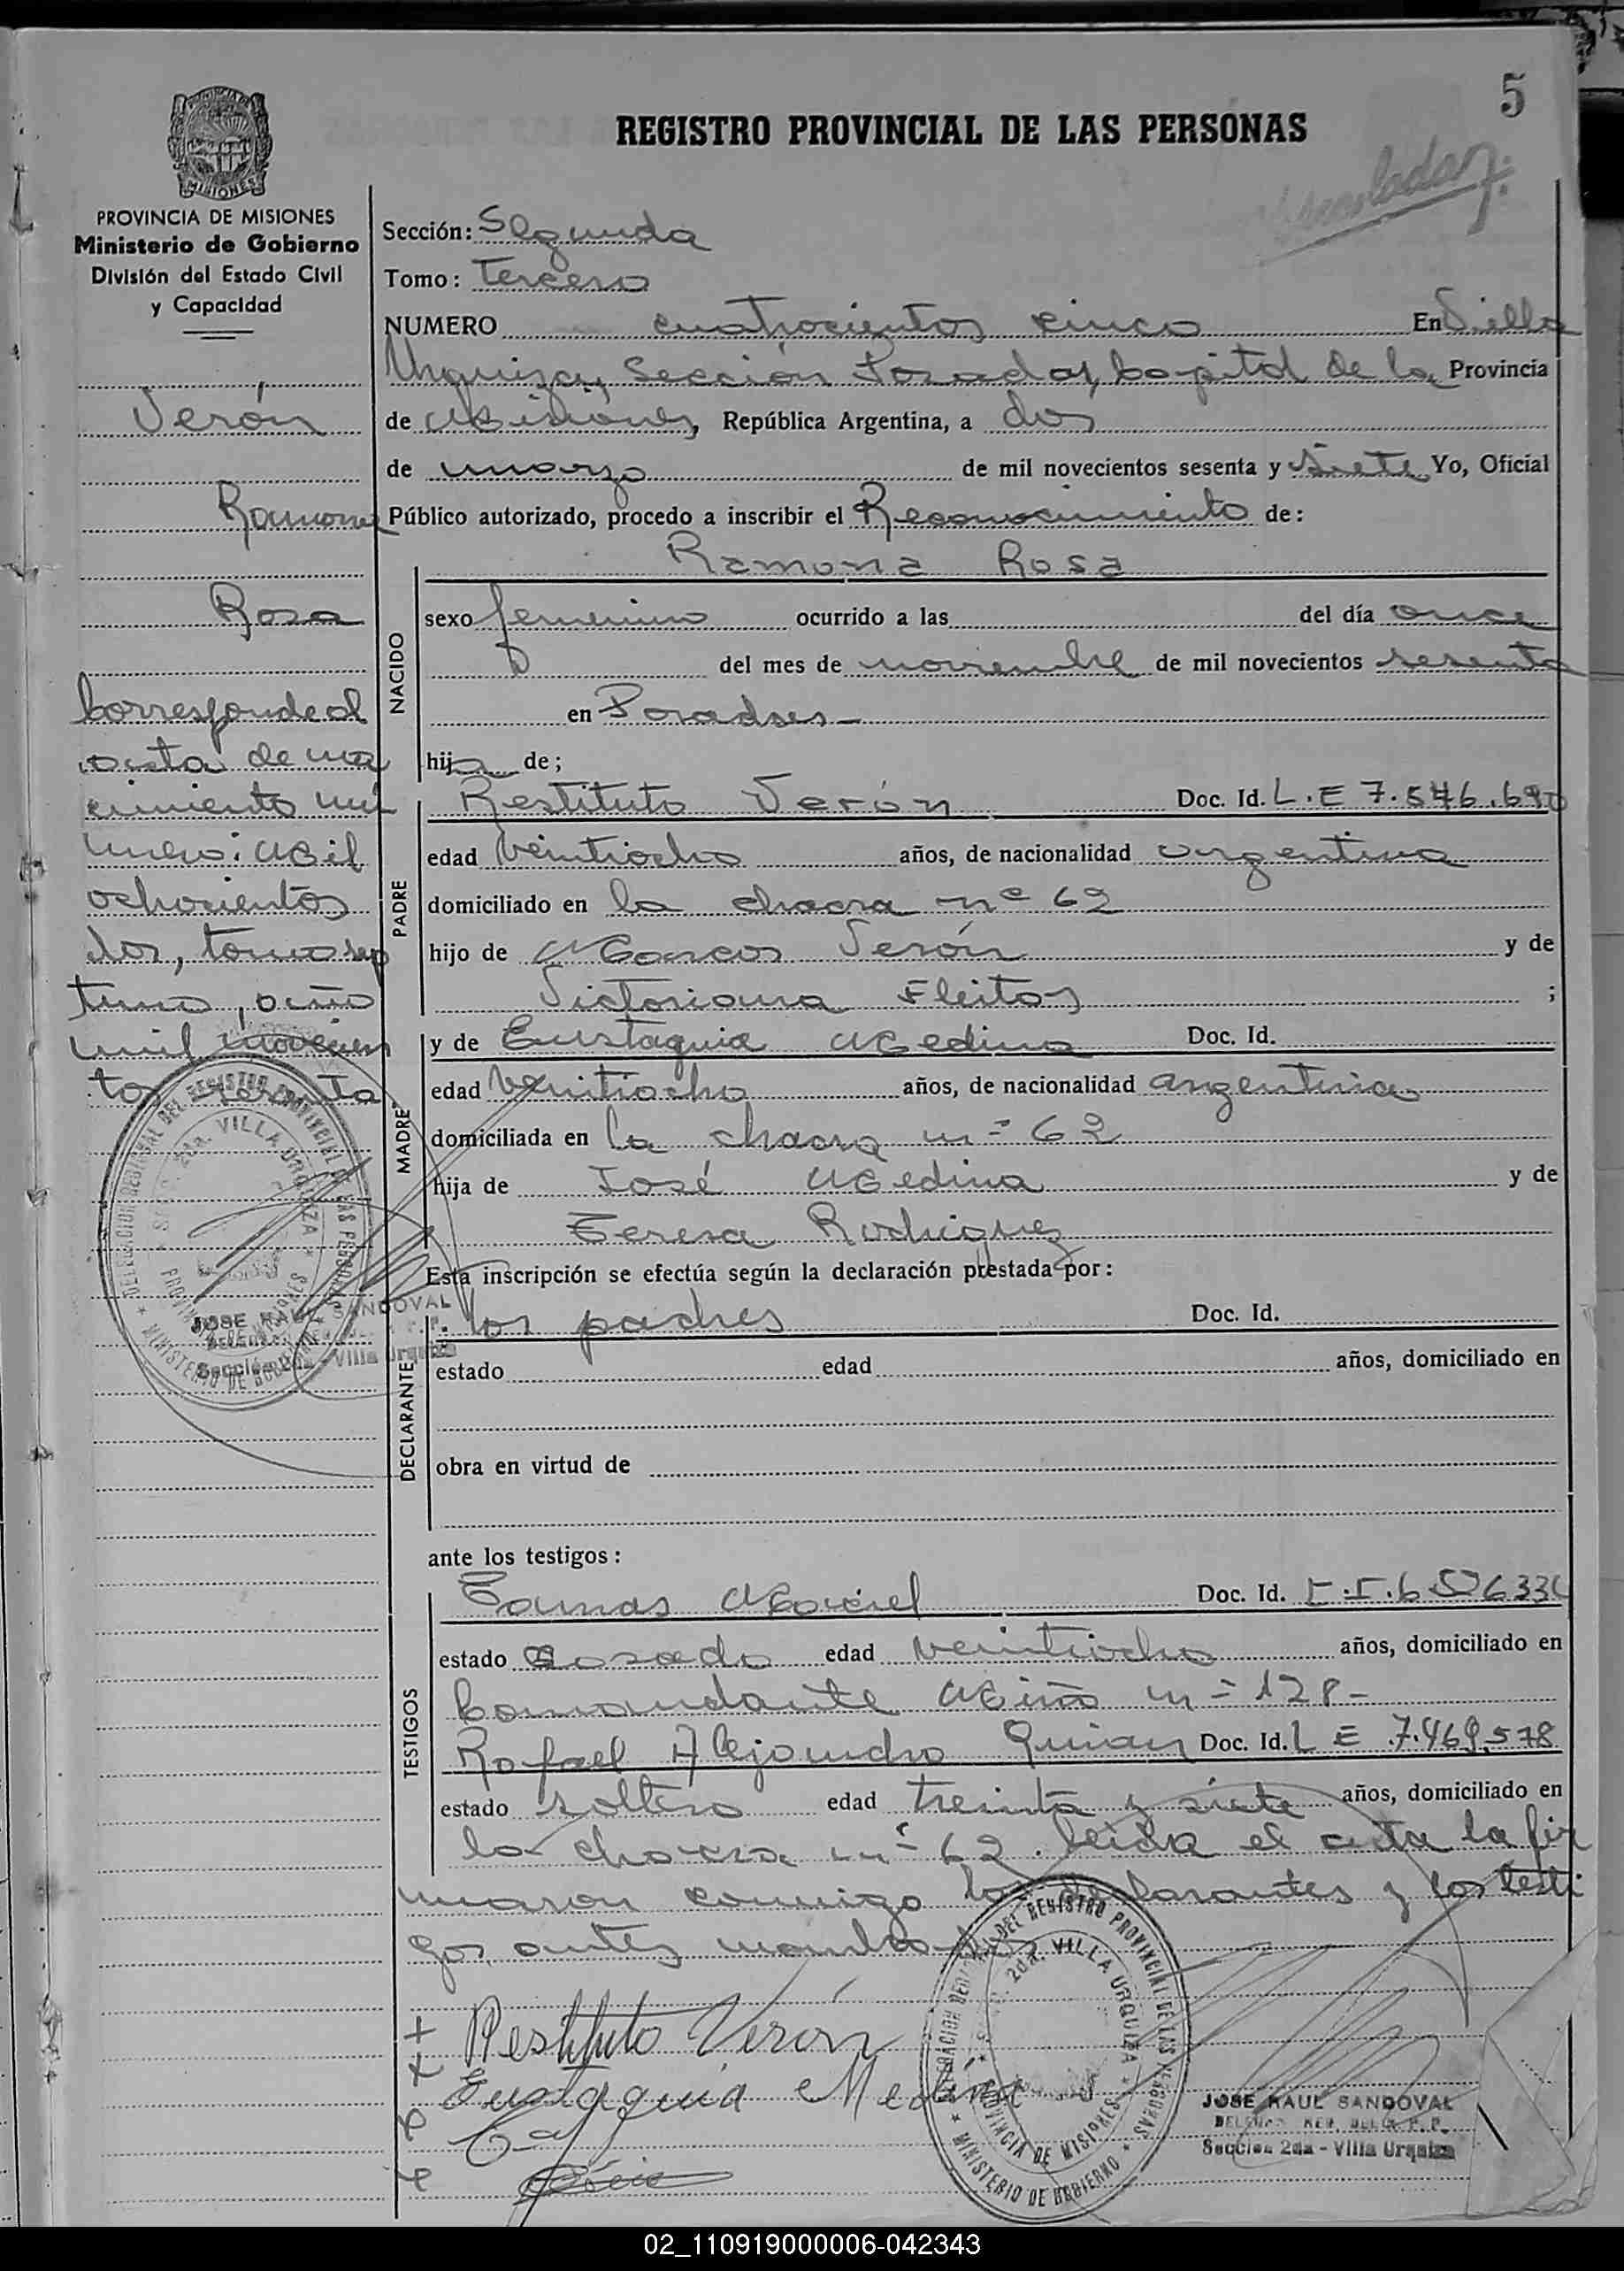 5
REGISTRO PROVINCIAL DE LAS PERSONAS
MISIONES
PROVINCIA DE MISIONES
Ministerio de Gobierno
División del Estado Civil
y Capacidad
Verón
Ramona
Rosa
Corresponde al
acta de na
cimiento nú
mero: Mil
ochocientos
dos, tomo sep
timo, año
mil novecien
tos sesenta
Sección: Segunda
Tomo: Tercero
NUMERO cuatrocientos cinco En Villa
Urquiza, Sección Posadas, Capital de la Provincia
de Misiones, República Argentina, a dos
de marzo de mil novecientos sesenta y siete Yo, Oficial
Público autorizado, procedo a inscribir el Reconocimiento de:
Ramona Rosa
NACIDO
sexo femenino ocurrido a las del día once
del mes de noviembre de mil novecientos sesenta
en Posadas -
hija de;
PADRE
Restituto Verón Doc. Id. L.E 7.546.690
edad veintiocho años, de nacionalidad argentina
domiciliado en la chacra nº 62
hijo de Marcos Verón y de
Victoriana Fleitas ;
MADRE
y de Eustaquia Medina Doc. Id.
edad veintiocho años, de nacionalidad argentina
domiciliada en la chacra nº 62
hija de José Medina y de
Teresa Rodriguez
Esta inscripción se efectúa según la declaración prestada por:
DECLARANTE
los padres Doc. Id.
estado edad años, domiciliado en
obra en virtud de
ante los testigos:
TESTIGOS
Tomas Maciel Doc. Id.
estado casado edad veintiocho años, domiciliado en
Comandante Miño nº 128 -
Rafael Alejandro Doc. Id. L E 7.469.578
estado soltero edad treinta y siete años, domiciliado en
la chacra nº 62. leida el acta la fir
maron conmigo los declarantes y los testi
gos antes nombrados
+ Restituto Verón
x Eustaquia Medina
DELEGACION REGIONAL DEL REGISTRO PROVINCIAL DE LAS PERSONAS
2da. VILLA URQUIZA
PROVINCIA DE MISIONES
MINISTERIO DE GOBIERNO
JOSE RAUL SANDOVAL
Sección 2da - Villa Urquiza
DELEGACION REGIONAL DEL REGISTRO PROVINCIAL DE LAS PERSONAS
2da. VILLA URQUIZA
PROVINCIA DE MISIONES
MINISTERIO DE GOBIERNO
JOSE RAUL SANDOVAL
Sección 2da - Villa Urquiza
02_110919000006-042343